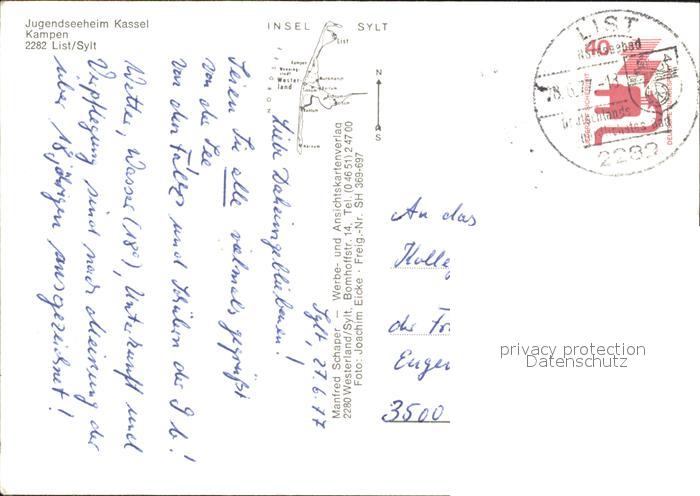 Jugendseeheim Kassel
Kampen
2282 List/Sylt
INSEL SYLT
List
Kampen
Westerland
N
S
Sylt, 27.6.77
Liebe Daheimgebliebenen!
Seien Sie alle vielmals gegrüßt
von der See
von den und Schülern der 9b!
Wetter, Wasser (18°), Unterkunft und
Verpflegung sind nach Meinung der
über 18jährigen ausgezeichnet!
Manfred Schaper – Werbe- und Ansichtskartenverlag
2280 Westerland/Sylt, Bomhoffstr. 14, Tel. (0 46 51) 2 47 00
Foto: Joachim Eicke · Freig.-Nr. SH 369-697
LIST
Nordseebad
40
Deutschlands
2282
An das
Kolle
der
Eugen
3500
privacy protection
Datenschutz